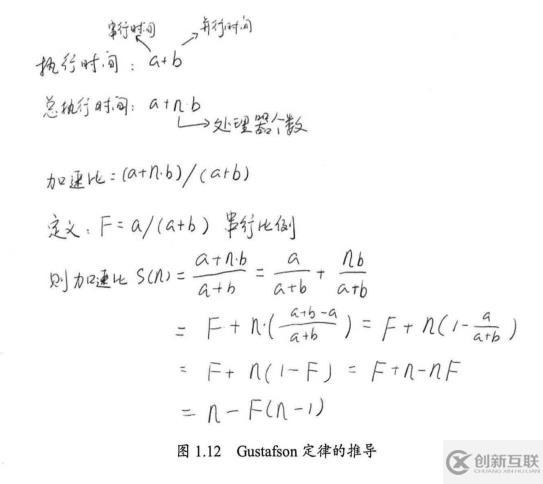 串行时间 并行时间
执行时间: a+b
总执行时间: a+n·b
处理器个数
加速比=(a+n·b)/(a+b)
定义: F=a/(a+b) 串行比例
则加速比 S(n)= (a+n·b)/(a+b) = a/(a+b) + nb/(a+b)
= F+n·((a+b-a)/(a+b)) = F+n(1-a/(a+b))
= F+n(1-F) = F+n-nF
= n-F(n-1)
图 1.12 Gustafson 定律的推导
创新互联
CHUANG XIN HU LIAN